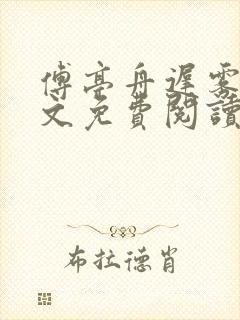 傅亭舟遲霧
文免費閱讀
布拉德肖